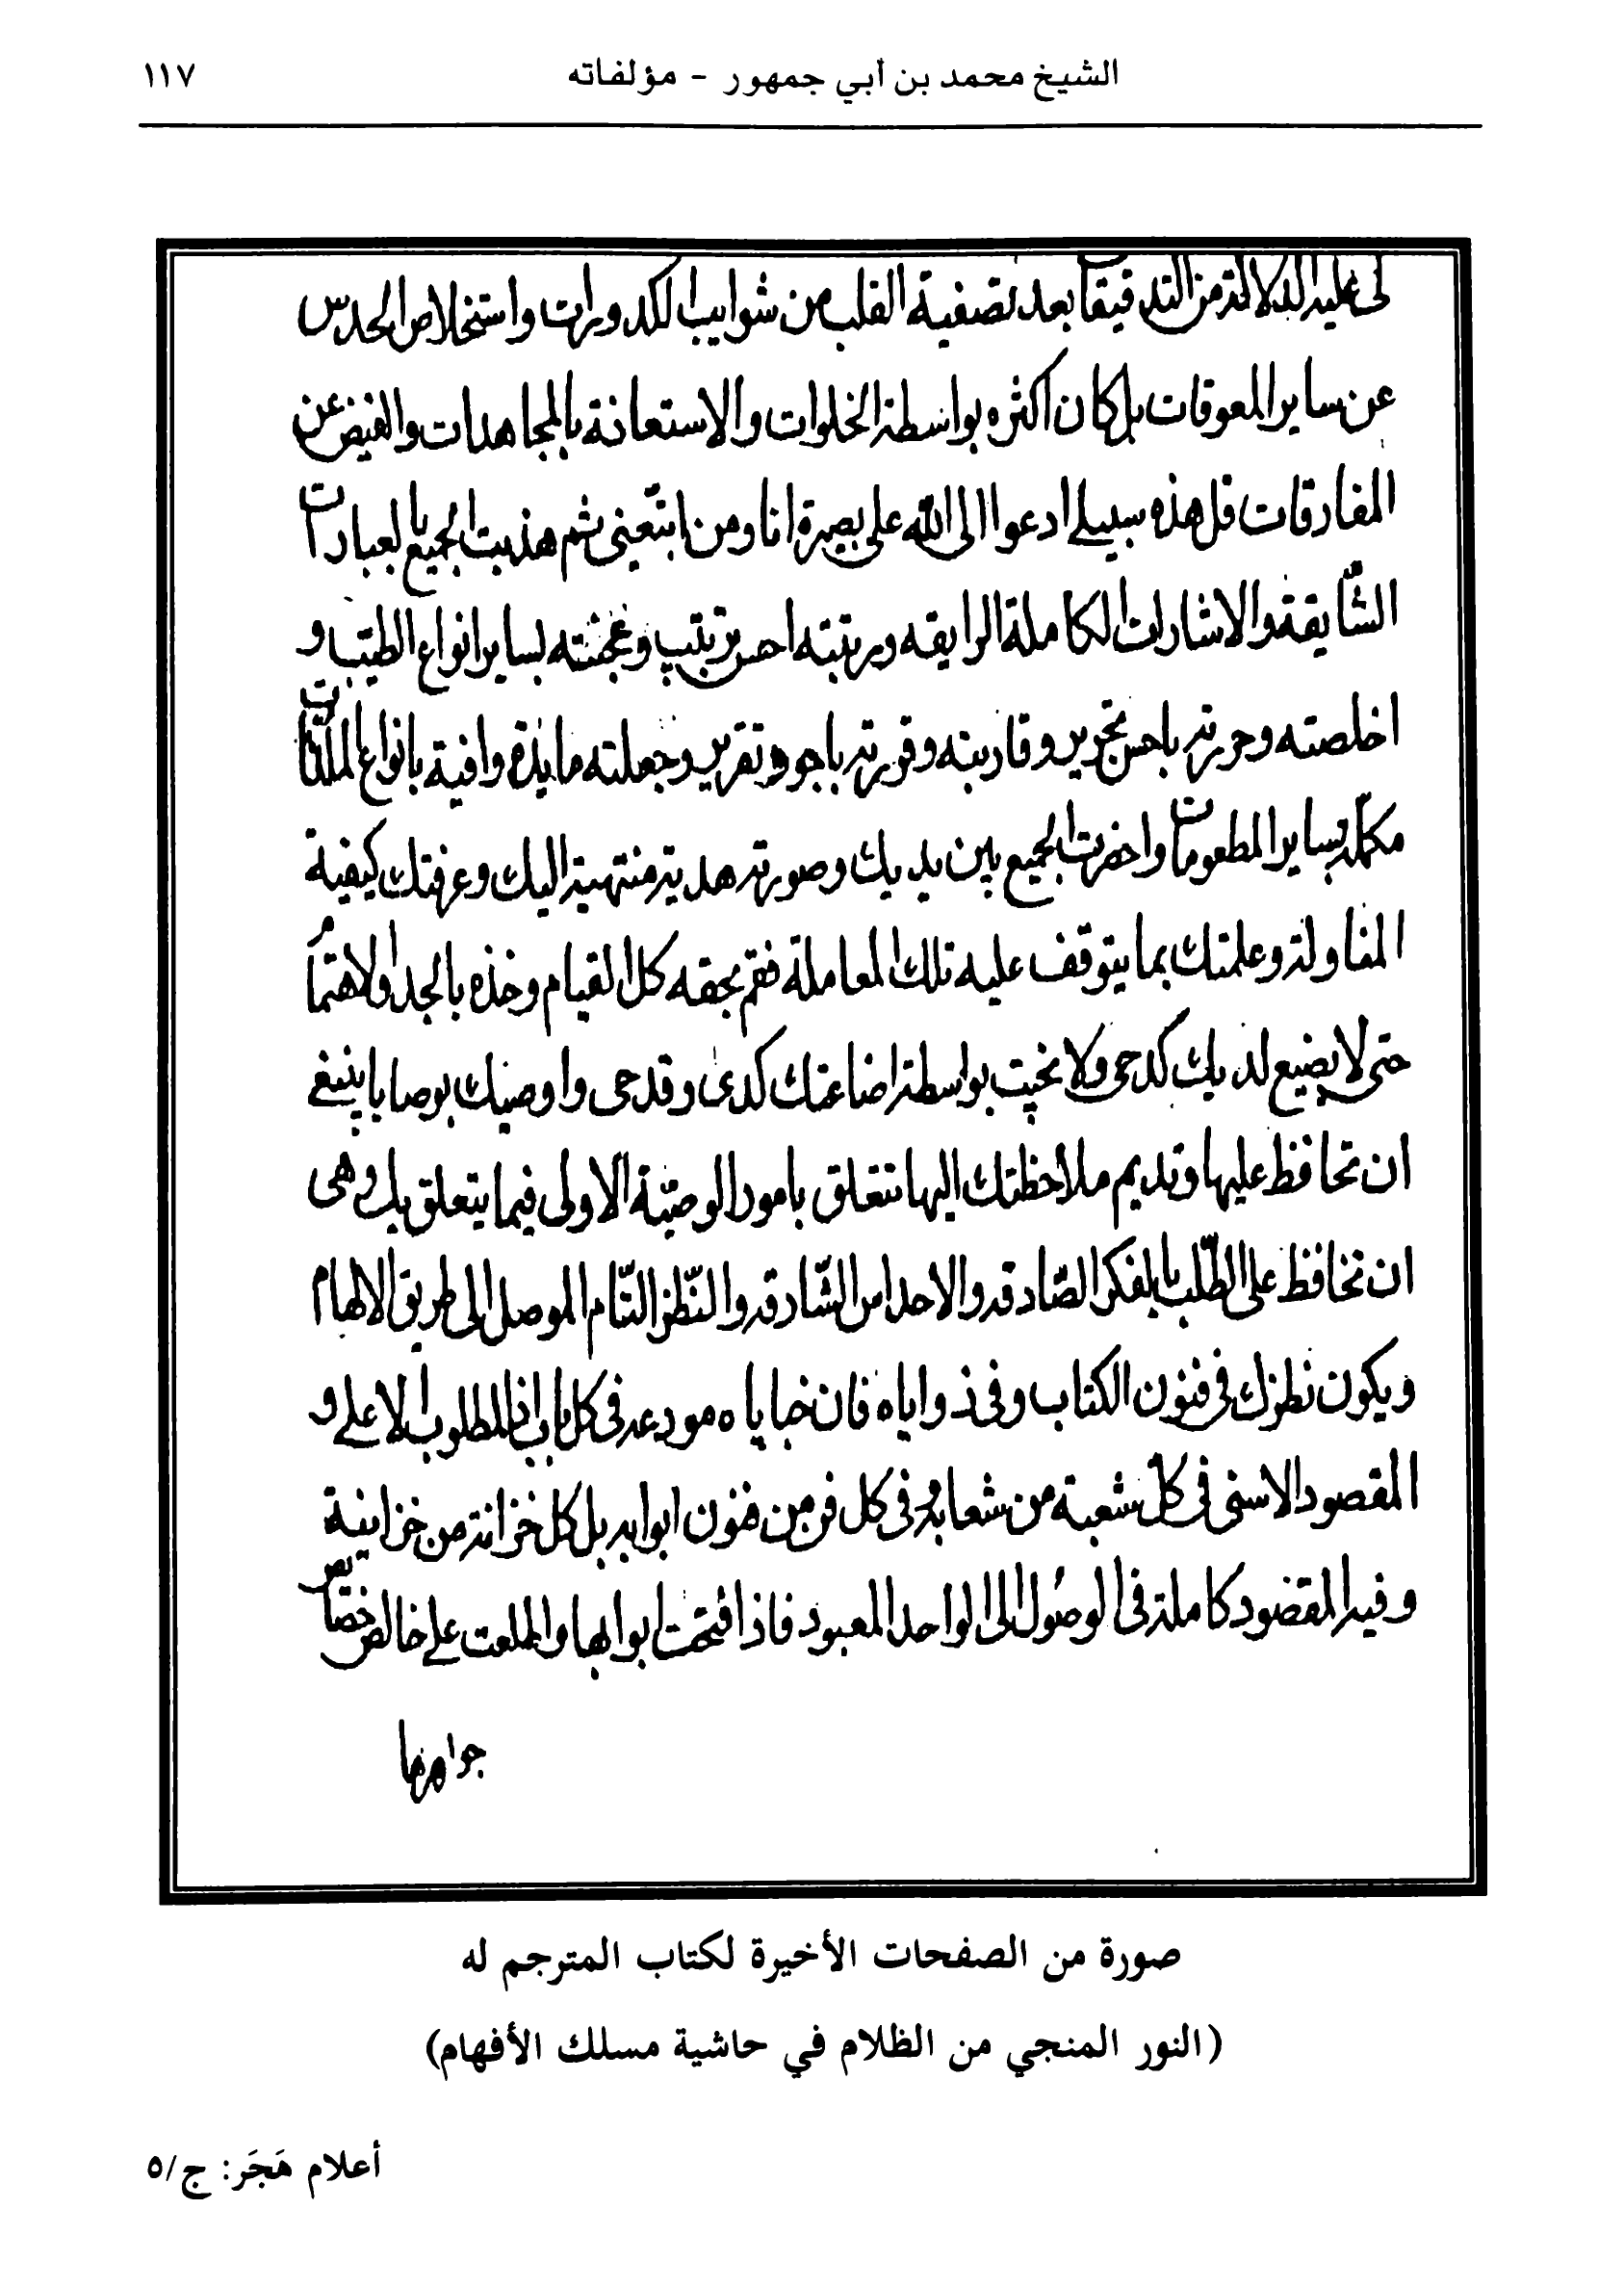 الشيخ محمد بن أبي جمهور - مؤلفاته ١١٧
لى عليه الدلالة من التدقيقا بعد تصفية القلب من شوايب الكدورات واستخلاص الحدس
عن ساير المعوقات بل كان اكثره بواسطة الخلوات والاستعانة بالمجاهدات والفيض عن
المفارقات قل هذه سبيلى ادعوا الى الله على بصيرة انا ومن اتبعنى ثم هذبت الجميع بالعبارات
الشايقة والاشارات الكاملة الرايقه ورتبته احسن ترتيب وعجنته بساير انواع الطيب و
اخلصته وحررته باحسن تحرير وقاربته وقررته باجود تقرير وجعلته مايدة وافية بانواع الملذات
مكملة بساير المطعومات واحضرت الجميع بين يديك وصورته هدية منتهية اليك وعرفتك كيفية
المناولة وعلمتك بما يتوقف عليه تلك المعاملة فقم بحقه كل القيام وخذه بالجد والاهتمام
حتى لا يضيع لديك كدحى ولا نخيت بواسطة اضاعتك كدى وقدحى واوصيك بوصايا ينبغى
ان تحافظ عليها وتديم ملاحظتك اليها تتعلق بامور الوصية الاولى فيما يتعلق بك وهى
ان تحافظ على الطلب بالفكر الصادقه والاحداس الشارقه والنظر التام الموصل الى طريق الالهام
ويكون نظرك فى فنون الكتاب وفى زواياه فان خباياه مودعه فى كل باب اذ المطلوب الاعلى و
المقصود الاسنى فى كل شعبة من شعابه وفى كل فن من فنون ابوابه بل كل خزانة من خزاينه
وفيه المقصود كاملة فى الوصول الى الواحد المعبود فاذا فتحت ابوابها واطلعت على خالص خصايص
جواهرها
صورة من الصفحات الأخيرة لكتاب المترجم له
(النور المنجي من الظلام في حاشية مسلك الأفهام)
أعلام هَجَر: ج/٥